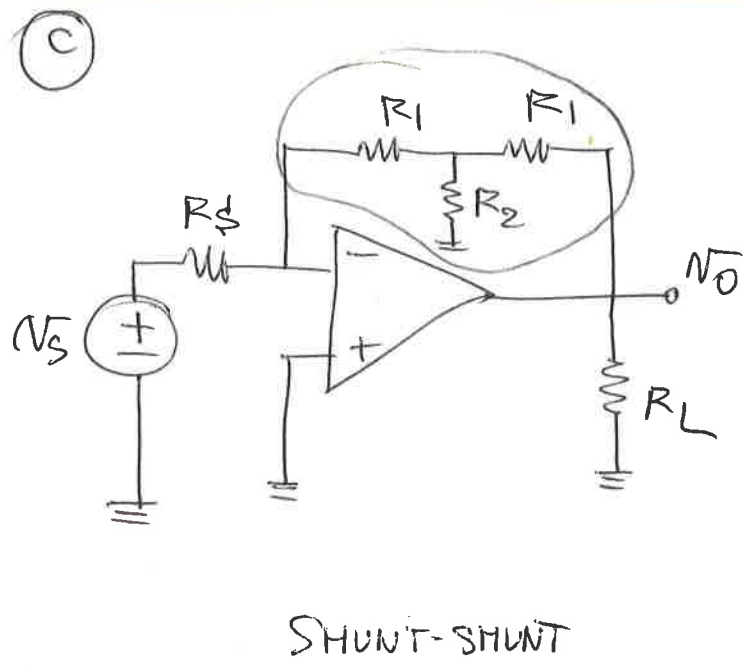 C
R1
R1
R2
RS
−
+
VS
+
−
VO
RL
SHUNT-SHUNT